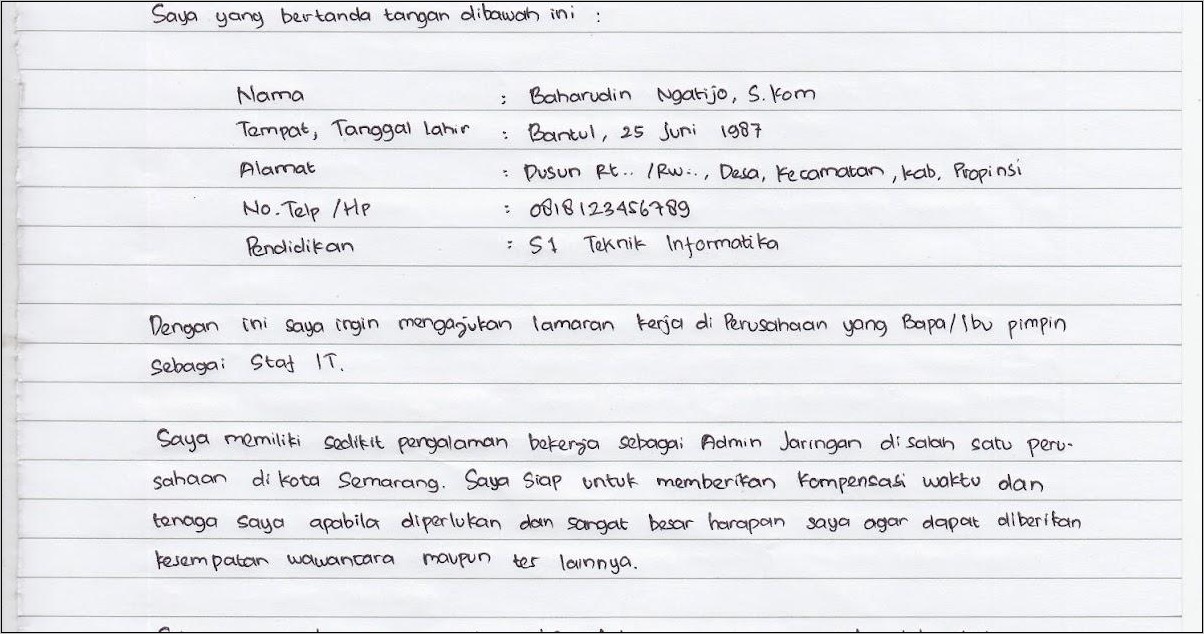 Saya yang bertanda tangan dibawah ini :
Nama : Baharudin Ngatijo, S.Kom
Tempat, Tanggal Lahir : Bantul, 25 Juni 1987
Alamat : Dusun Rt.. /Rw.., Desa, Kecamatan, Kab, Propinsi
No.Telp /Hp : 0818123456789
Pendidikan : S1 Teknik Informatika
Dengan ini saya ingin mengajukan lamaran kerja di Perusahaan yang Bapa/Ibu pimpin
sebagai Staf IT.
Saya memiliki sedikit pengalaman bekerja sebagai Admin Jaringan di salah satu peru-
sahaan di kota Semarang. Saya siap untuk memberikan kompensasi waktu dan
tenaga saya apabila diperlukan dan sangat besar harapan saya agar dapat diberikan
kesempatan wawancara maupun tes lainnya.